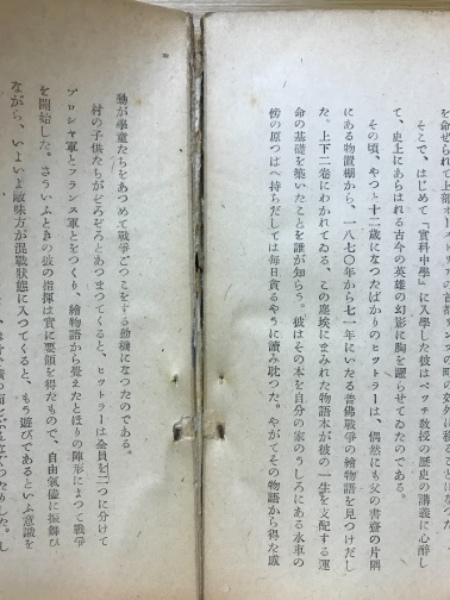 を命ぜられて上部オー
の町の郊外に移ることになつた
そこで、はじめて「實科中學」に入學した彼はペツチ教授の歴史の講義に心醉し
て、史上にあらはれる古今の英雄の幻影に胸を躍らせてゐたのである。
その頃、やつと十二歳になつたばかりのヒツトラーは、偶然にも父の書齋の片隅
にある物置棚から、一八七〇年から七一年にいたる普佛戰爭の繪物語を見つけだし
た。上下二卷にわかれてゐる、この塵埃にまみれた物語本が彼の一生を支配する運
命の基礎を築いたことを誰が知らう。彼はその本を自分の家のうしろにある水車の
傍の原つぱへ持ちだしては毎日貪るやうに讀み耽つた。やがてその物語から得た感
動が學童たちをあつめて戰爭ごつこをする動機になつたのである。
村の子供たちがぞろぞろとあつまつてくると、ヒツトラーは全員を二つに分けて
プロシヤ軍とフランス軍とをつくり、繪物語から覺えたとほりの陣形によつて戰爭
を開始した。さういふときの彼の指揮は實に要領を得たもので、自由氣儘に振舞ひ
ながら、いよいよ敵味方が混戰狀態に入つてくると、もう遊びであるといふ意識を